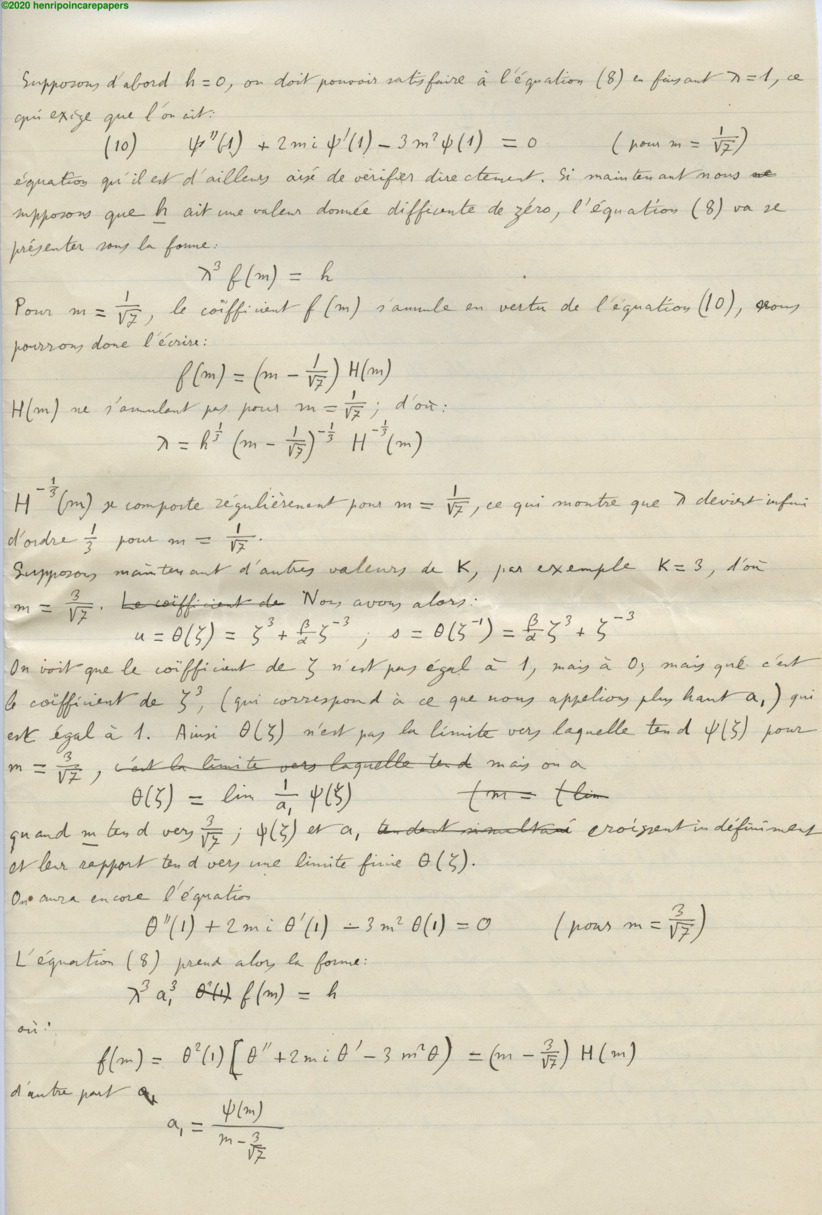 ©2020 henripoincarepapers
Supposons d'abord h=0, on doit pouvoir satisfaire à l'équation (8) en faisant λ=1, ce
qui exige que l'on ait:
(10) ψ''(1) + 2mi ψ'(1) − 3m²ψ(1) = 0 (pour m = 1/√7)
équation qu'il est d'ailleurs aisé de vérifier directement. Si maintenant nous ne
supposons que h ait une valeur donnée différente de zéro, l'équation (8) va se
présenter sous la forme:
λ³ f(m) = h
Pour m = 1/√7, le coëfficient f(m) s'annule en vertu de l'équation (10), nous
pourrons donc l'écrire:
f(m) = (m − 1/√7) H(m)
H(m) ne s'annulant pas pour m = 1/√7; d'où:
λ = h^{1/3} (m − 1/√7)^{−1/3} H^{−1/3}(m)
H^{−1/3}(m) se comporte régulièrement pour m = 1/√7, ce qui montre que λ devient infini
d'ordre 1/3 pour m = 1/√7.
Supposons maintenant d'autres valeurs de K, par exemple K=3, d'où
m = 3/√7. Le coëfficient de Nous avons alors:
u = θ(ζ) = ζ³ + β/α ζ⁻³ ; s = θ(ζ⁻¹) = β/α ζ³ + ζ⁻³
On voit que le coëfficient de ζ n'est pas égal à 1, mais à 0; mais que c'est
le coëfficient de ζ³, (qui correspond à ce que nous appelions plus haut a₁) qui
est égal à 1. Ainsi θ(ζ) n'est pas la limite vers laquelle tend ψ(ζ) pour
m = 3/√7, c'est la limite vers laquelle tend mais on a
θ(ζ) = lim 1/a₁ ψ(ζ) (m = (lim
quand m tend vers 3/√7; ψ(ζ) et a₁ tendent simultané croissent indéfiniment
et leur rapport tend vers une limite finie θ(ζ).
On aura encore l'équation
θ''(1) + 2mi θ'(1) − 3m² θ(1) = 0 (pour m = 3/√7)
L'équation (8) prend alors la forme:
λ³ a₁³ θ²(1) f(m) = h
où:
f(m) = θ²(1) [θ'' + 2mi θ' − 3m²θ) = (m − 3/√7) H(m)
d'autre part a₁
a₁ = ψ(m)/(m − 3/√7)